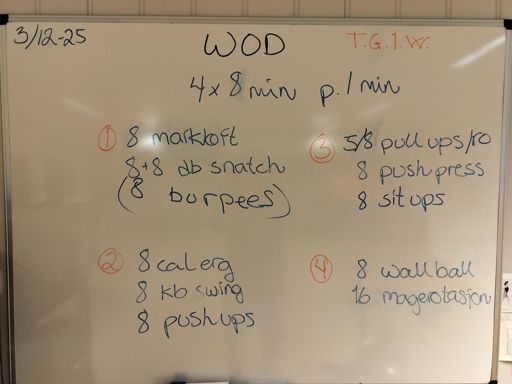 3/12-25
WOD
T.G.I.W.
4x8min p.1min
① 8 markløft
8+8 db snatch
(8 burpees)
② 8 cal erg
8 kb swing
8 push ups
③ 5/8 pull ups/ro
8 push press
8 sit ups
④ 8 wallball
16 magerotasjon